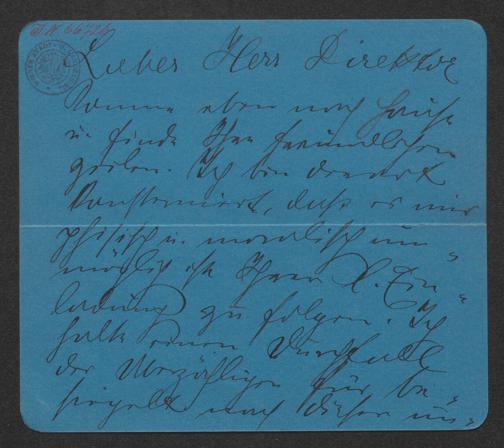 J.N. 66726
Lieber Herr Direktor
Komme eben nach Hause
u. finde Ihre freundlichen
Zeilen. Ich bin derart
konsterniert, daß es mir
phisisch u. moralisch un„
möglich ist Ihrer l. Ein„
ladung zu folgen. Ich
halte einen Durchfall
der Unzähligen für be„
siegelt nach dieser un„